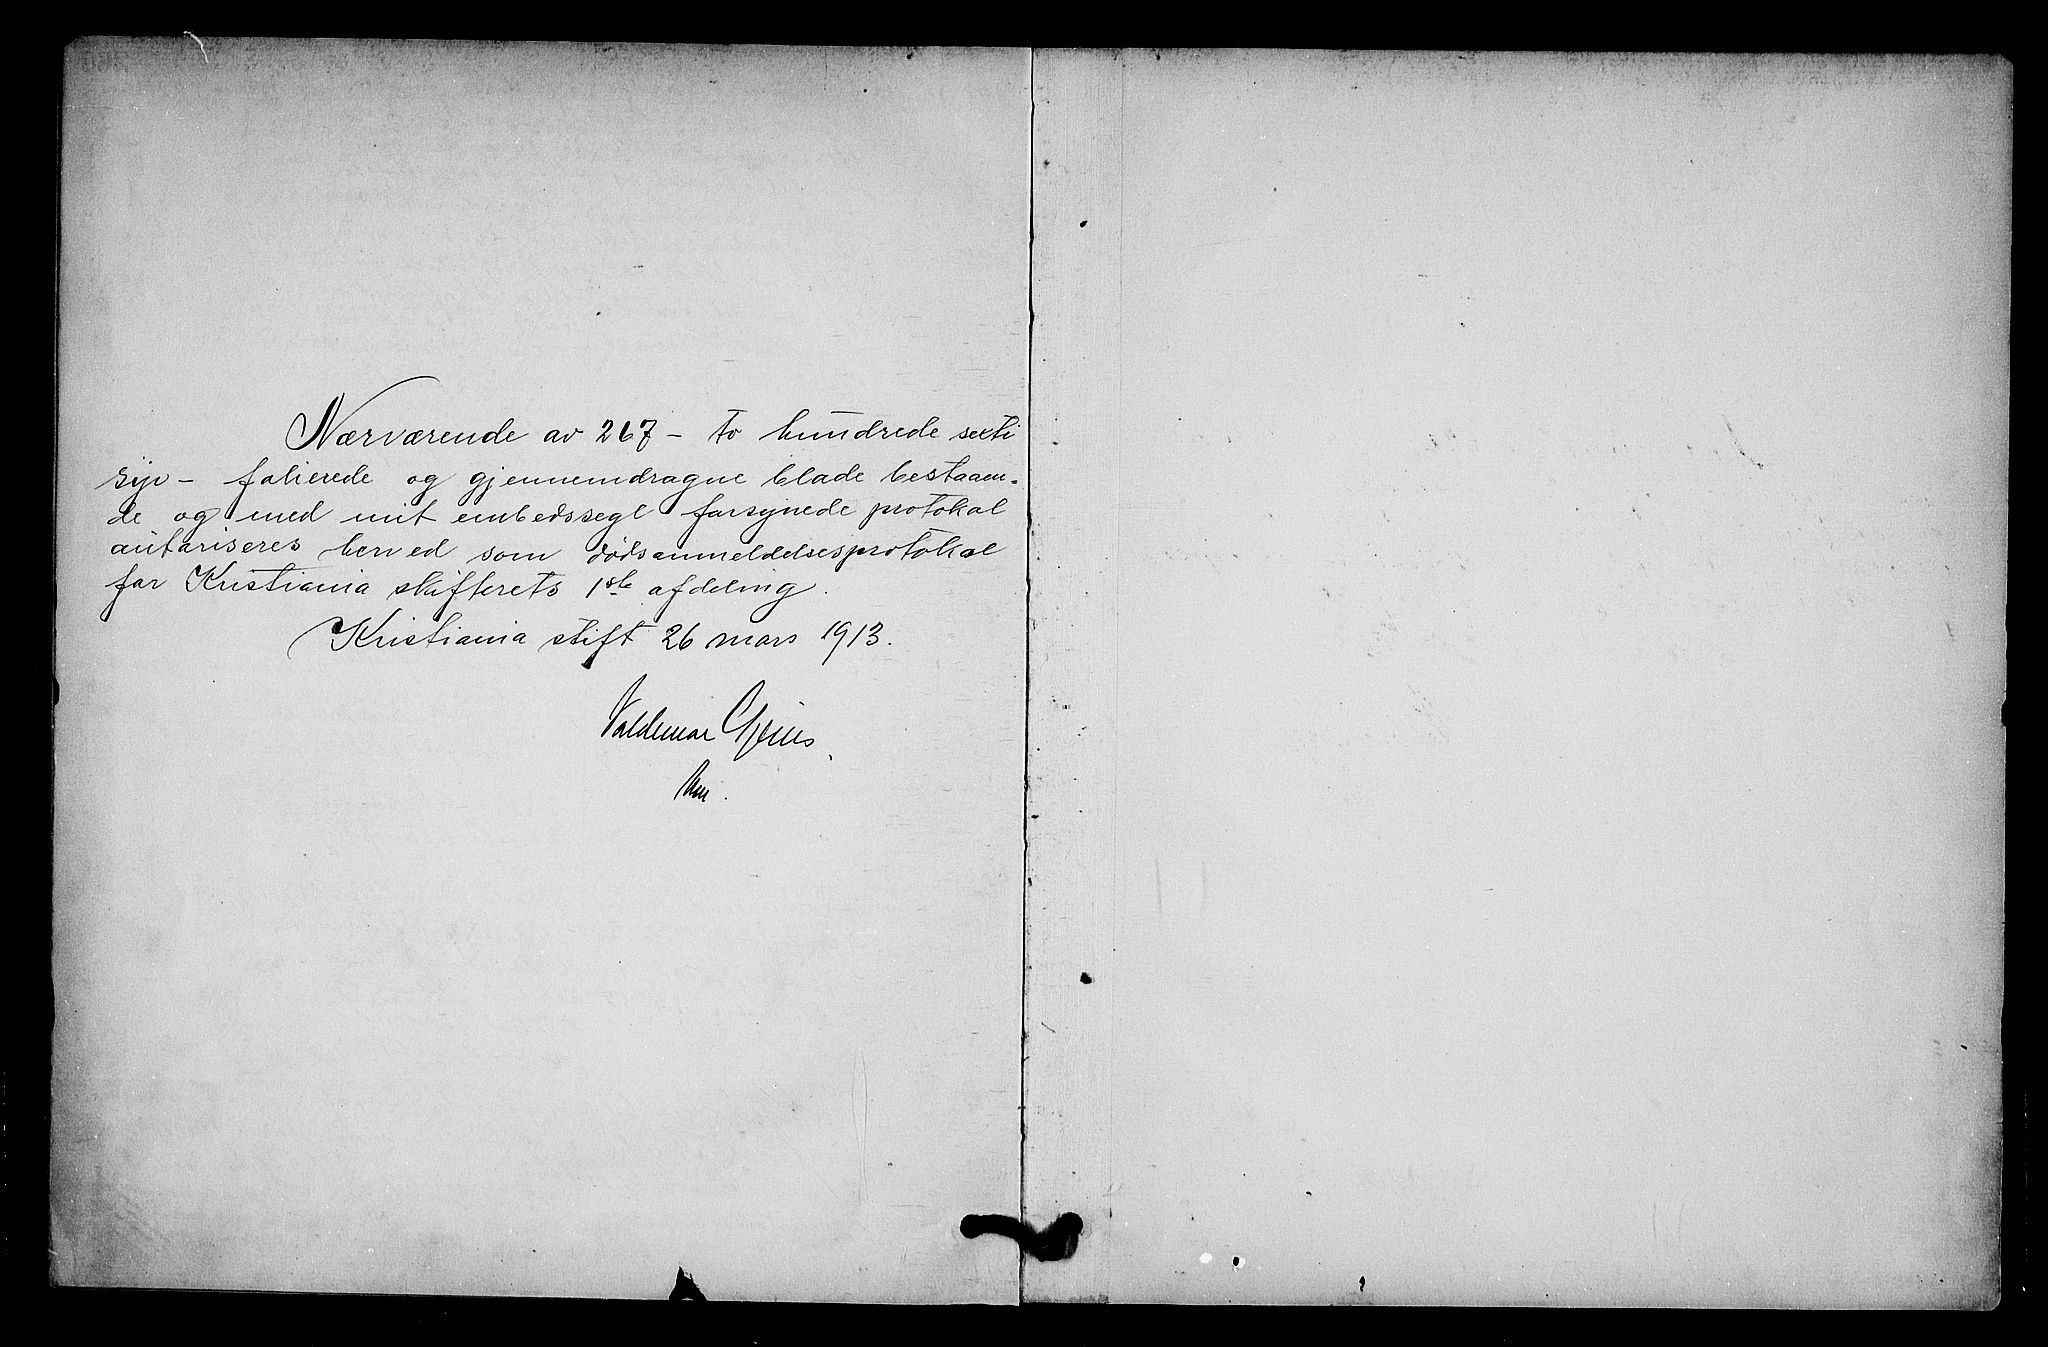 Nærværende av 267 - to hundrede sexti
syv - folierede og gjennemdragne blade bestaaen-
de og med mit embedssegl forsynede protokol
autoriseres herved som dødsanmeldelsesprotokol
for Kristiania skifterets 1ste afdeling.
Kristiania stift 26 mars 1913.
Valdemar